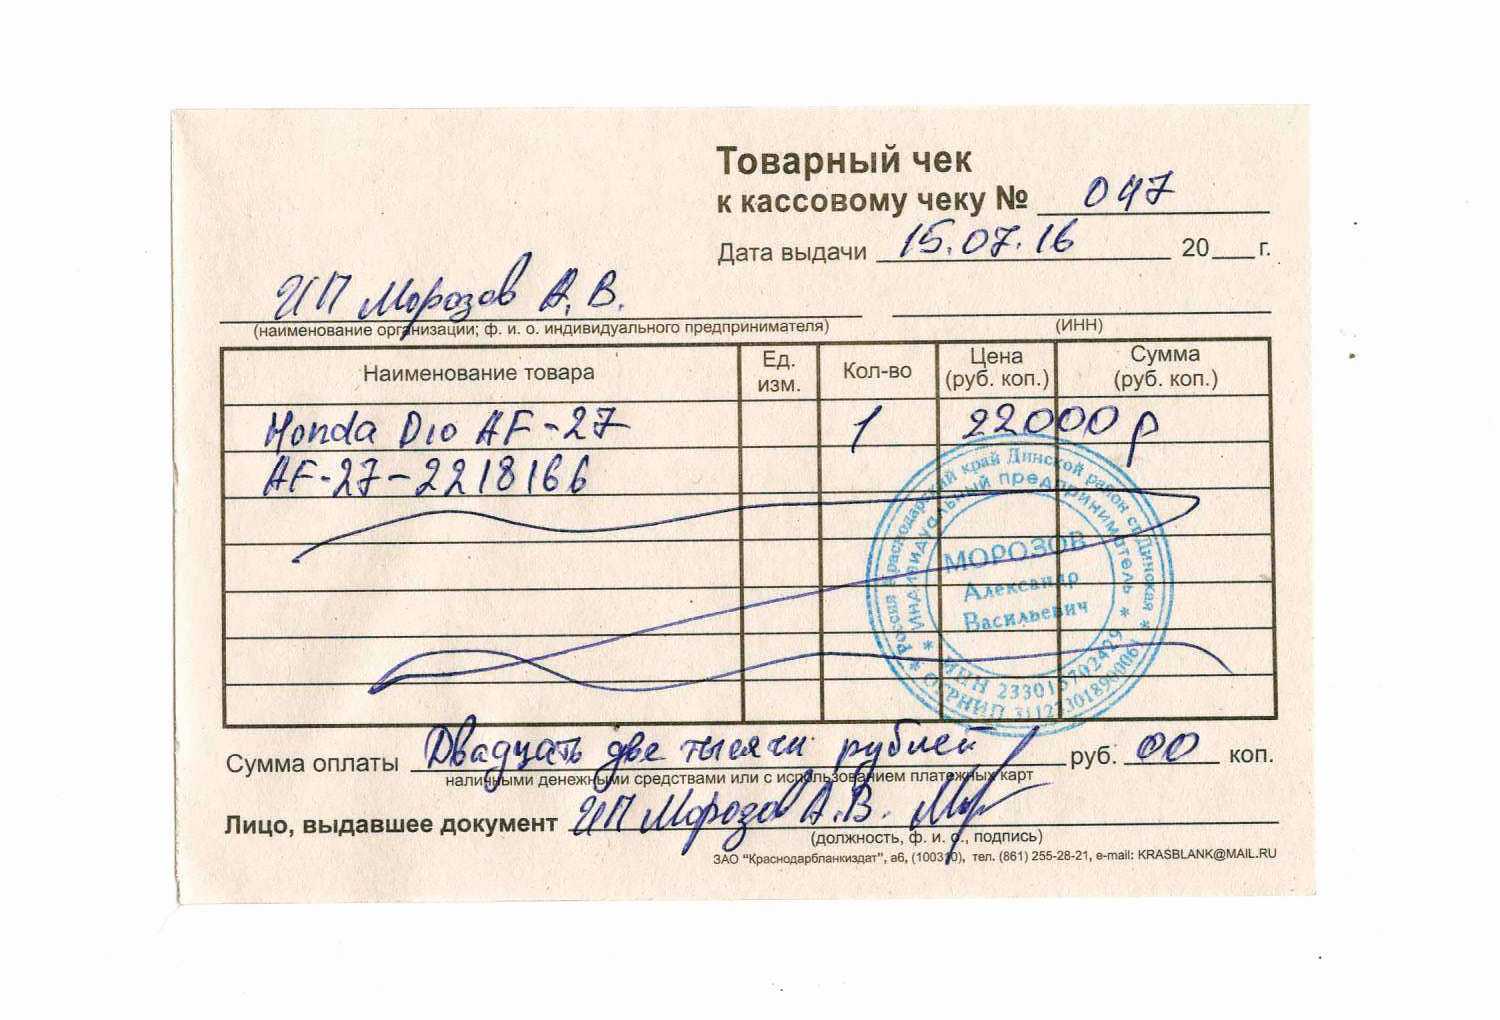 Товарный чек
к кассовому чеку № 047
Дата выдачи 15.07.16 20 г.
ИП Морозов А. В.
(наименование организации; ф. и. о. индивидуального предпринимателя) (ИНН)
Наименование товара Ед. изм. Кол-во Цена (руб. коп.) Сумма (руб. коп.)
Honda Dio AF-27 1 22000 р
AF-27-2218166
Россия Краснодарский край Динской район ст. Динская
Индивидуальный предприниматель
МОРОЗОВ
Александр
Васильевич
ИНН 233013702429
ОГРНИП
Сумма оплаты Двадцать две тысячи рублей руб. 00 коп.
наличными денежными средствами или с использованием платежных карт
Лицо, выдавшее документ ИП Морозов А.В.
(должность, ф. и. о., подпись)
ЗАО "Краснодарбланкиздат", аб, (100310), тел. (861) 255-28-21, e-mail: KRASBLANK@MAIL.RU